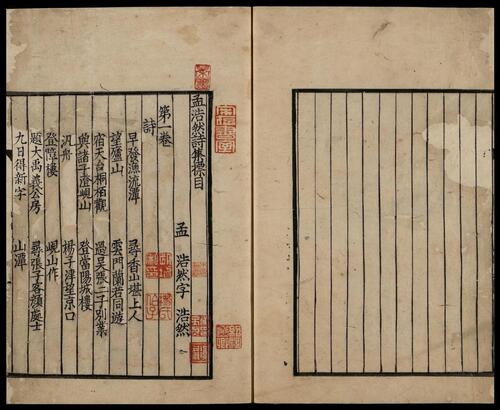 孟浩然詩集標目
孟 浩然字 浩然
第一卷
詩
早發漁浦潭 尋香山湛上人
望廬山 雲門蘭若同遊
宿天台桐柏觀 過吳張二子別業
與諸子登峴山 登當陽城樓
汎舟 楊子津望京口
登樟樓 峴山作
題大禹義公房 尋張子容處士
九日得新字 山潭